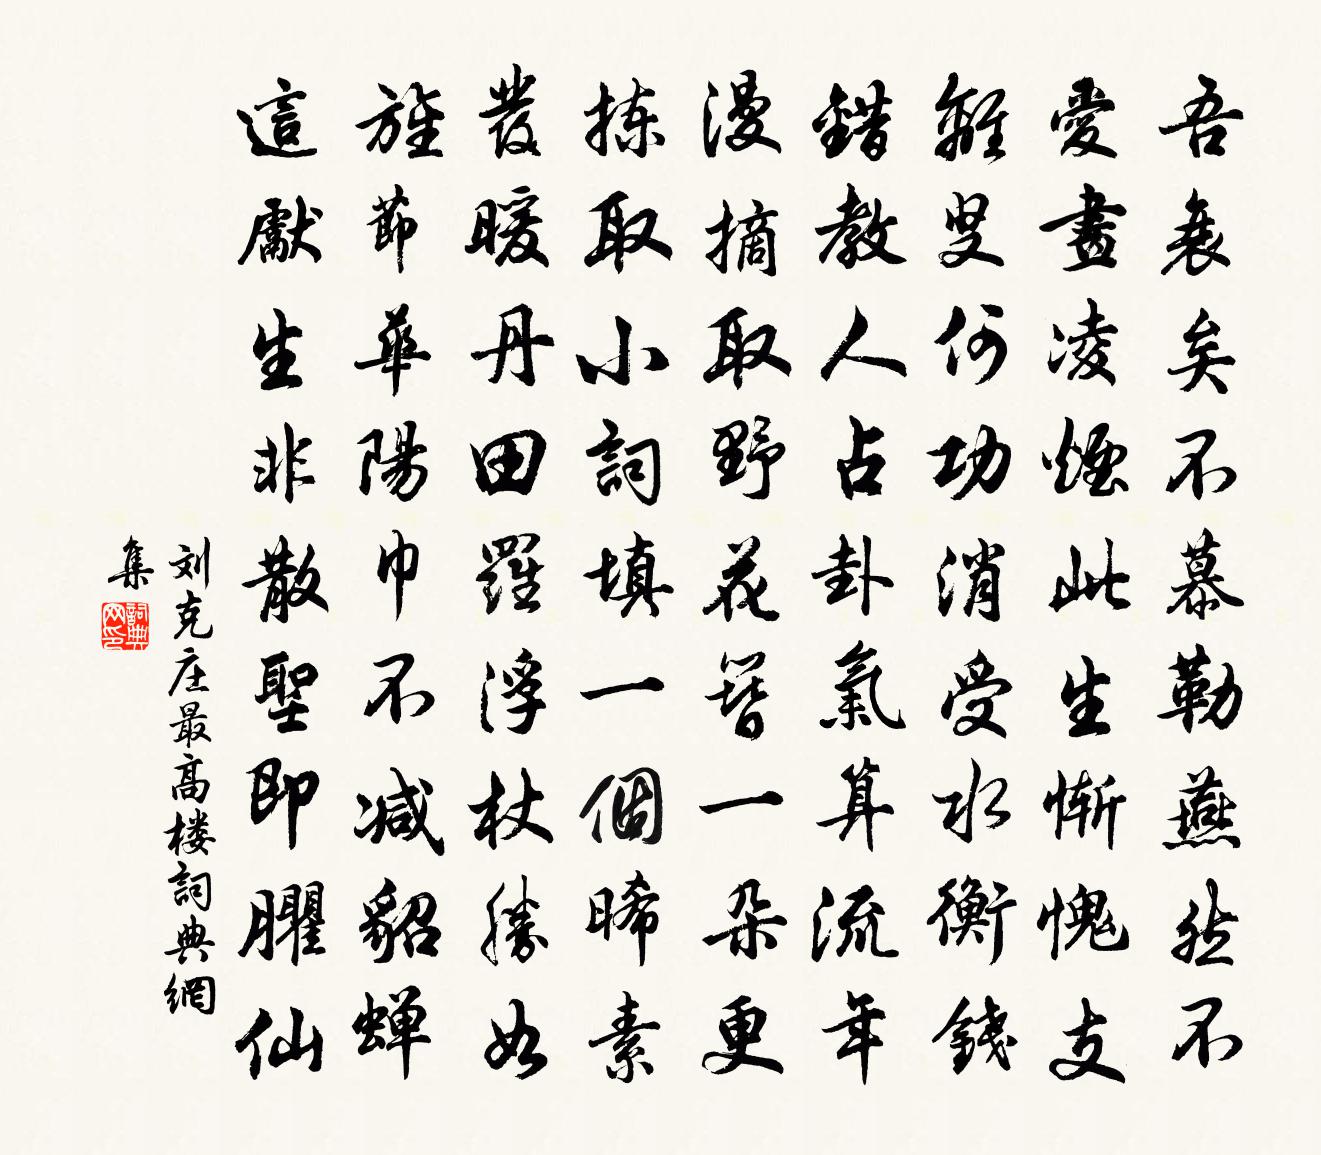 吾衰矣不慕勒燕然不
愛畫凌煙此生慚愧支
離叟何功消受水衡錢
錯教人占卦氣算流年
漫摘取野花簪一朵更
揀取小詞填一個晞素
髮暖丹田羅浮杖勝如
旌節華陽巾不減貂蟬
這獻生非散聖即臞仙
刘克庄最高楼詞典網
集
詞典网印